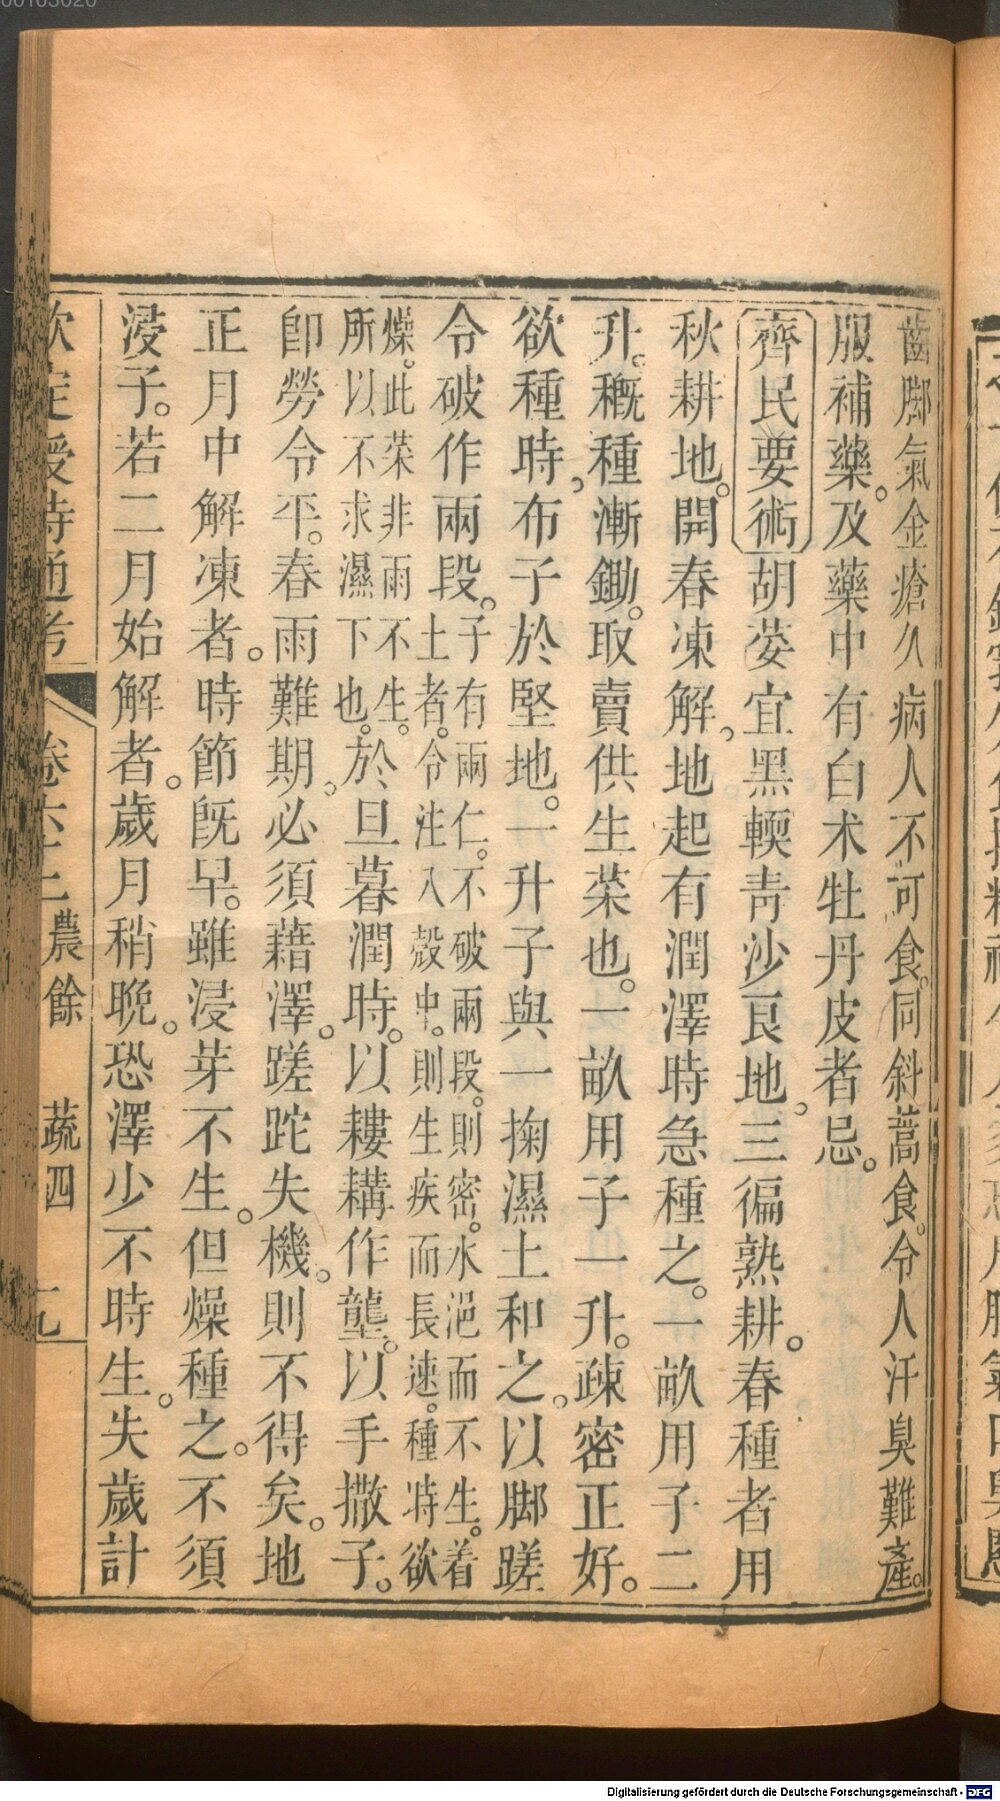 00103020
齒脚氣金瘡久病人不可食。同斜蒿食。令人汗臭難產。
服補藥。及藥中有白术牡丹皮者忌。
齊民要術胡荽宜黑輭青沙良地。三徧熟耕。春種者用
秋耕地。開春凍解。地起有潤澤時急種之。一畝用子二
升。穊種漸鋤。取賣供生菜也。一畝用子一升。疎密正好。
欲種時。布子於堅地。一升子與一掬濕土和之。以脚蹉
令破作兩段。子有兩仁。不破兩段。則密。水浥而不生。着
土者。令注入殼中。則生疾而長速。種時欲
燥。此菜非雨不生。
所以不求濕下也。於旦暮潤時。以耬耩作壟。以手撒子。
卽勞令平。春雨難期。必須藉澤。蹉跎失機。則不得矣。地
正月中解凍者。時節旣早。雖浸芽不生。但燥種之。不須
浸子。若二月始解者。歲月稍晚。恐澤少不時生。失歲計
欽定授時通考 卷六十二 農餘 蔬四
Digitalisierung gefördert durch die Deutsche Forschungsgemeinschaft - DFG